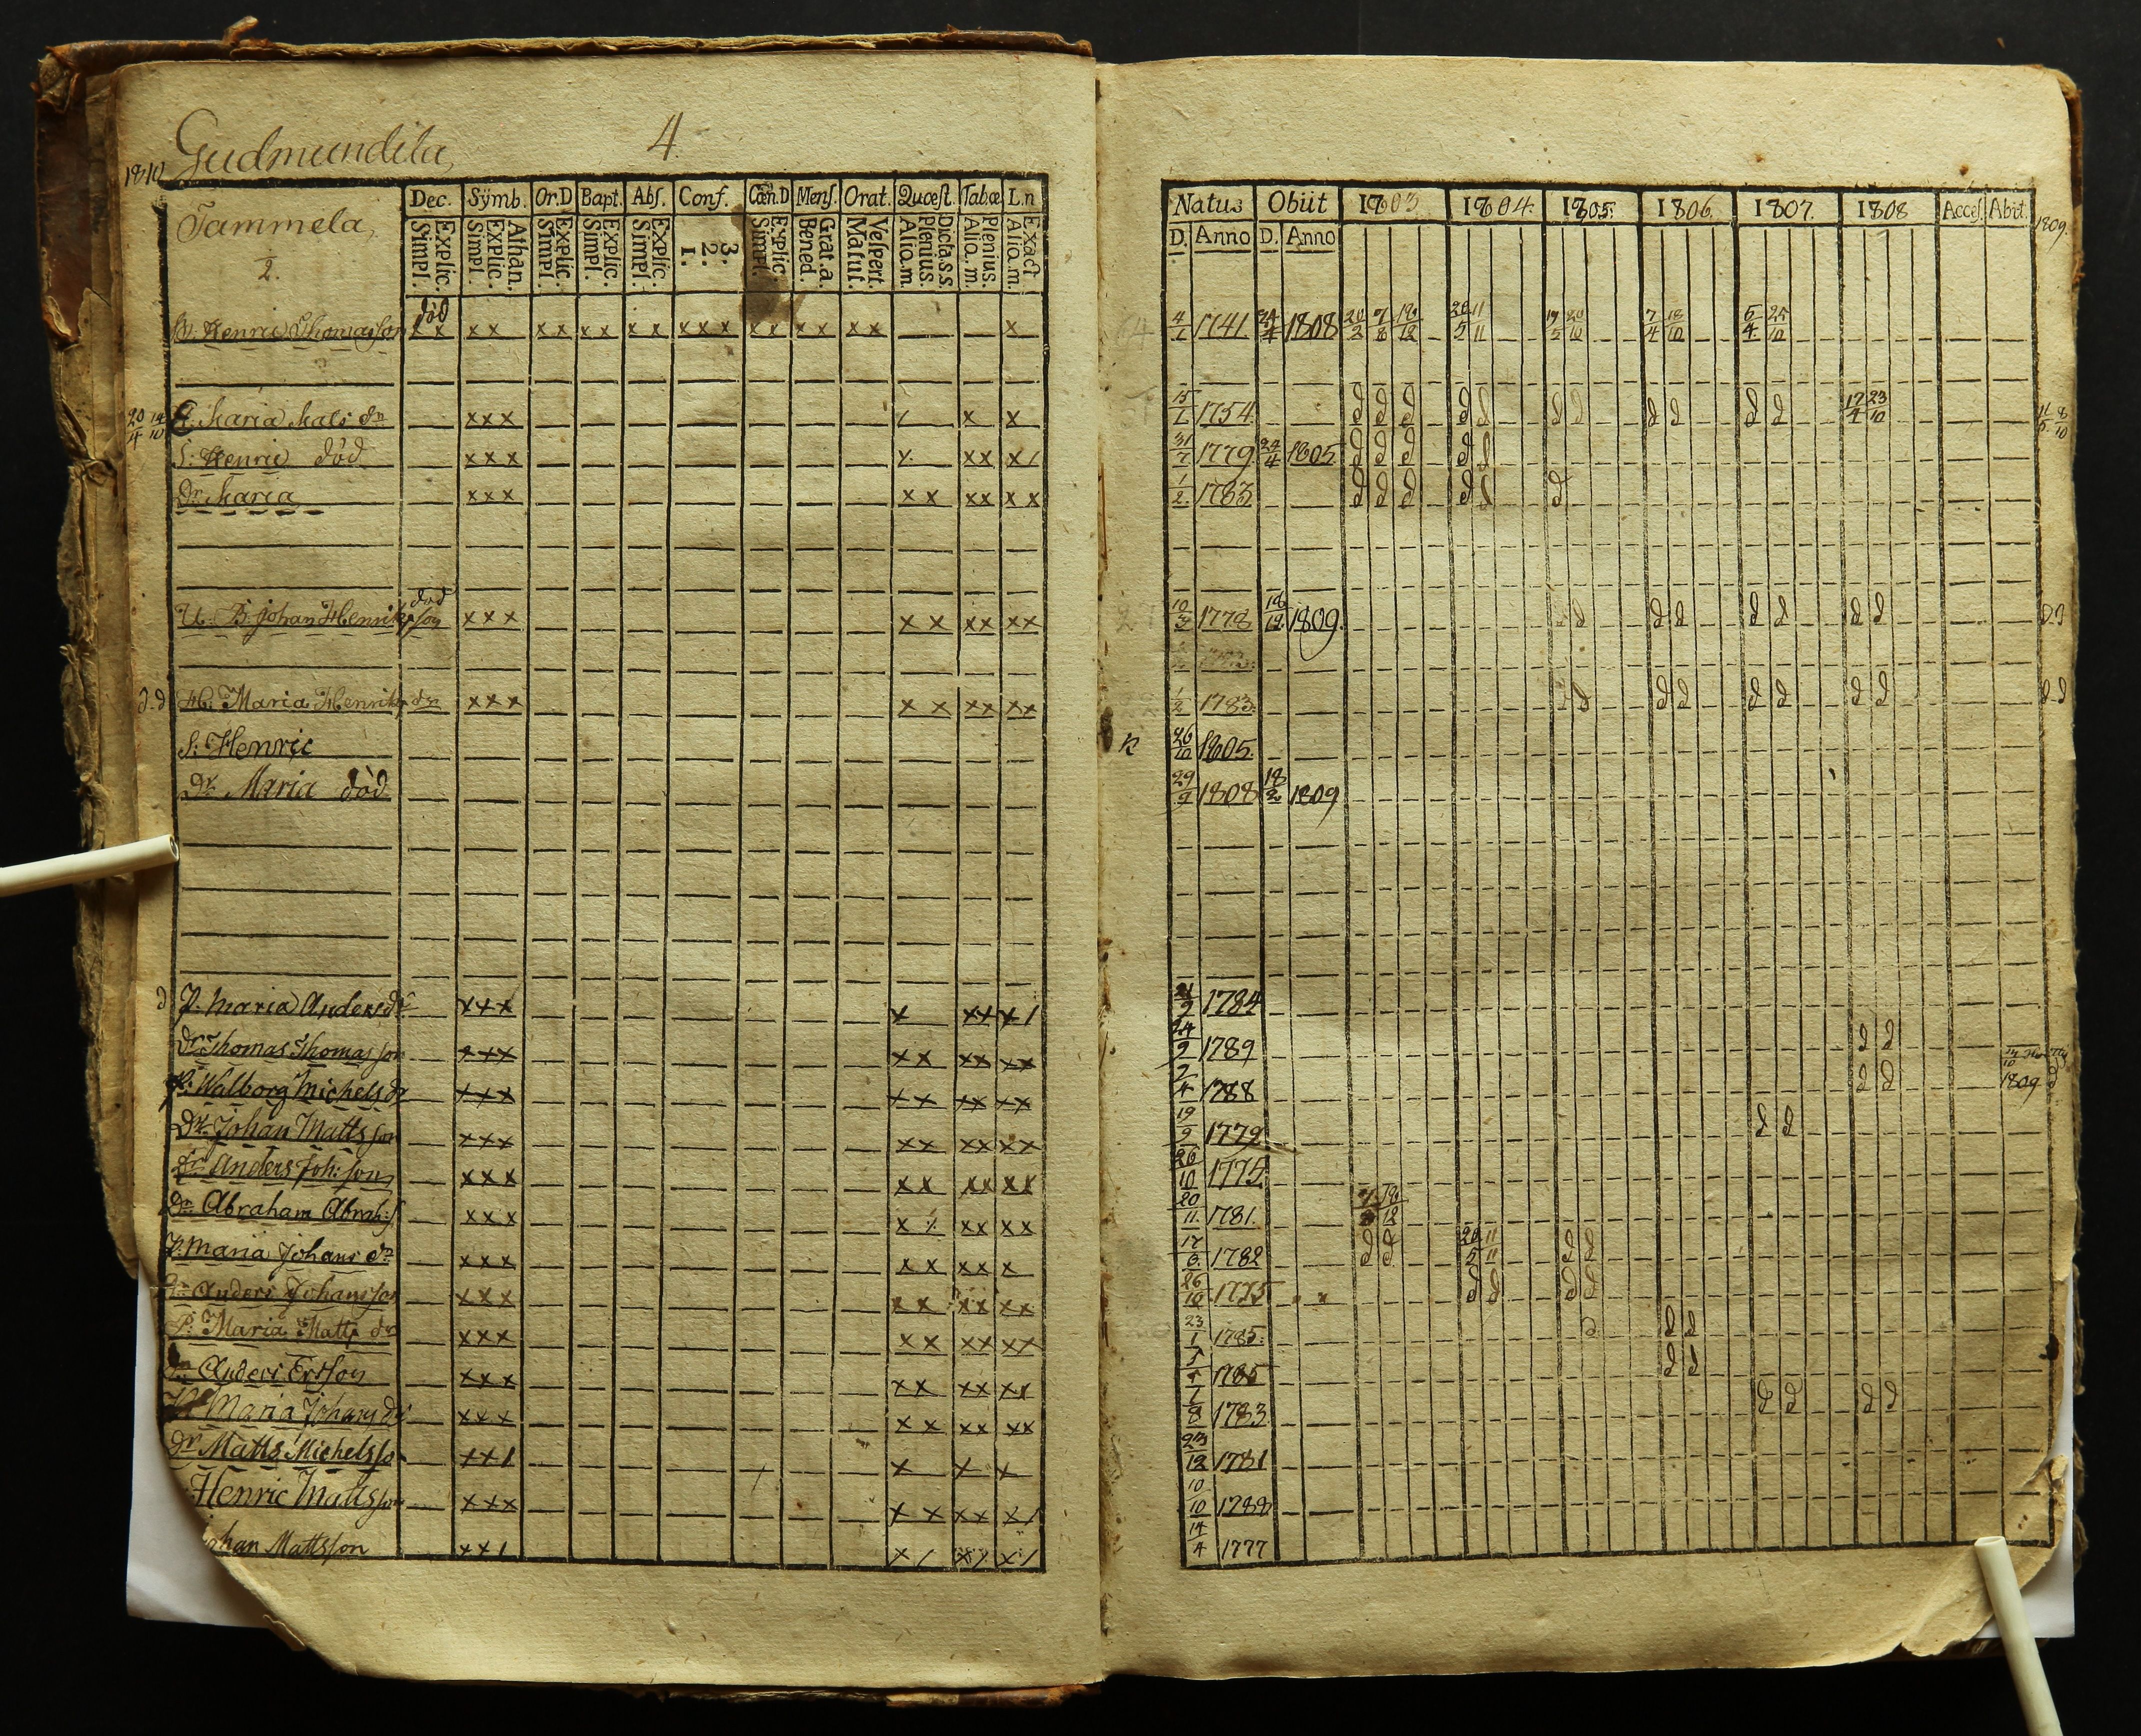 Gudmundila, 4.
1810
Dec. Symb. Or.D Bapt. Abs. Conf. Cœn.D Mens. Orat. Quœst. Tabœ L.n
Explic. Simpl. Athan. Explic. Simpl. Explic. Simpl. Explic. Simpl. Explic. Simpl. 3. 2. 1. Explic. Simpl. Grat.a. Bened. Vespert. Matut. Dicta.s.s. Plenius. Alio.m. Plenius. Alio.m. Exact Alio.m.
Tammela,
2.
B. Henric Thomasson död xx xx xx xx xx xxx xx xx xx x
H. Maria Mats dr xxx x x
S: Henric död xxx x xx x/
Dr. Maria xxx xx xx xx
U. B. Johan Henriksson död xxx xx xx xx
d-d H. Maria Henriks dr xxx xx xx xx
S: Henric
Dr Maria död
d P. Maria Anders dr xxx x xx x/
Dr. Thomas Thomasson xxx xx xx xx
P: Walborg Michels dr xxx xx xx xx
Dr. Johan Mattsson xxx xx xx xx
Dr Anders Joh:son xxx xx xx xx
Dr. Abraham Abrah:s xxx x / xx xx
P. Maria Johans dr xxx xx xx x
Dr Anders Johansson xxx xx xx xx
P: Maria Matts dr xxx xx xx xx
Dr. Anders Ersson xxx xx xx xx
P. Maria Johans dr xxx xx xx xx
Dr Matts Michelsso xx/ x x x
Henric Mattsson xxx xx xx x/
Johan Mattsson xx/ x/ x/ x/
Natus Obiit 1803. 1804. 1805. 1806. 1807. 1808 Acces. Abit. 1809.
D. Anno D. Anno
1741 1808 20/2 7/8 18/12 20/5 11/11 19/5 20/10 7/4 18/10 5/4 25/10
15/1 1754 d d d d d d d d d d d 17/4 23/10
31/7 1779 24/4 1805 d d d d d
1/2 1783 d d d d d d
10/3 1778 1809. d d d d d d d d d.d
1/2 1783. d d d d d d d d d.d
26/10 1805.
29/9 1808 18/2 1809
1784
24/9 1789 d d
7/4 1788 d d 1809
19/9 1779 d d
26/10 1775.
20/11. 1781. 18/12
17/6. 1782 d d 20/5 11/11 d d
26/10 1775 d d d d
23/1 1785: d d d
1785 d d
1/8 1783 d d d d
23/12 1781
10/10 1788
14/4 1777